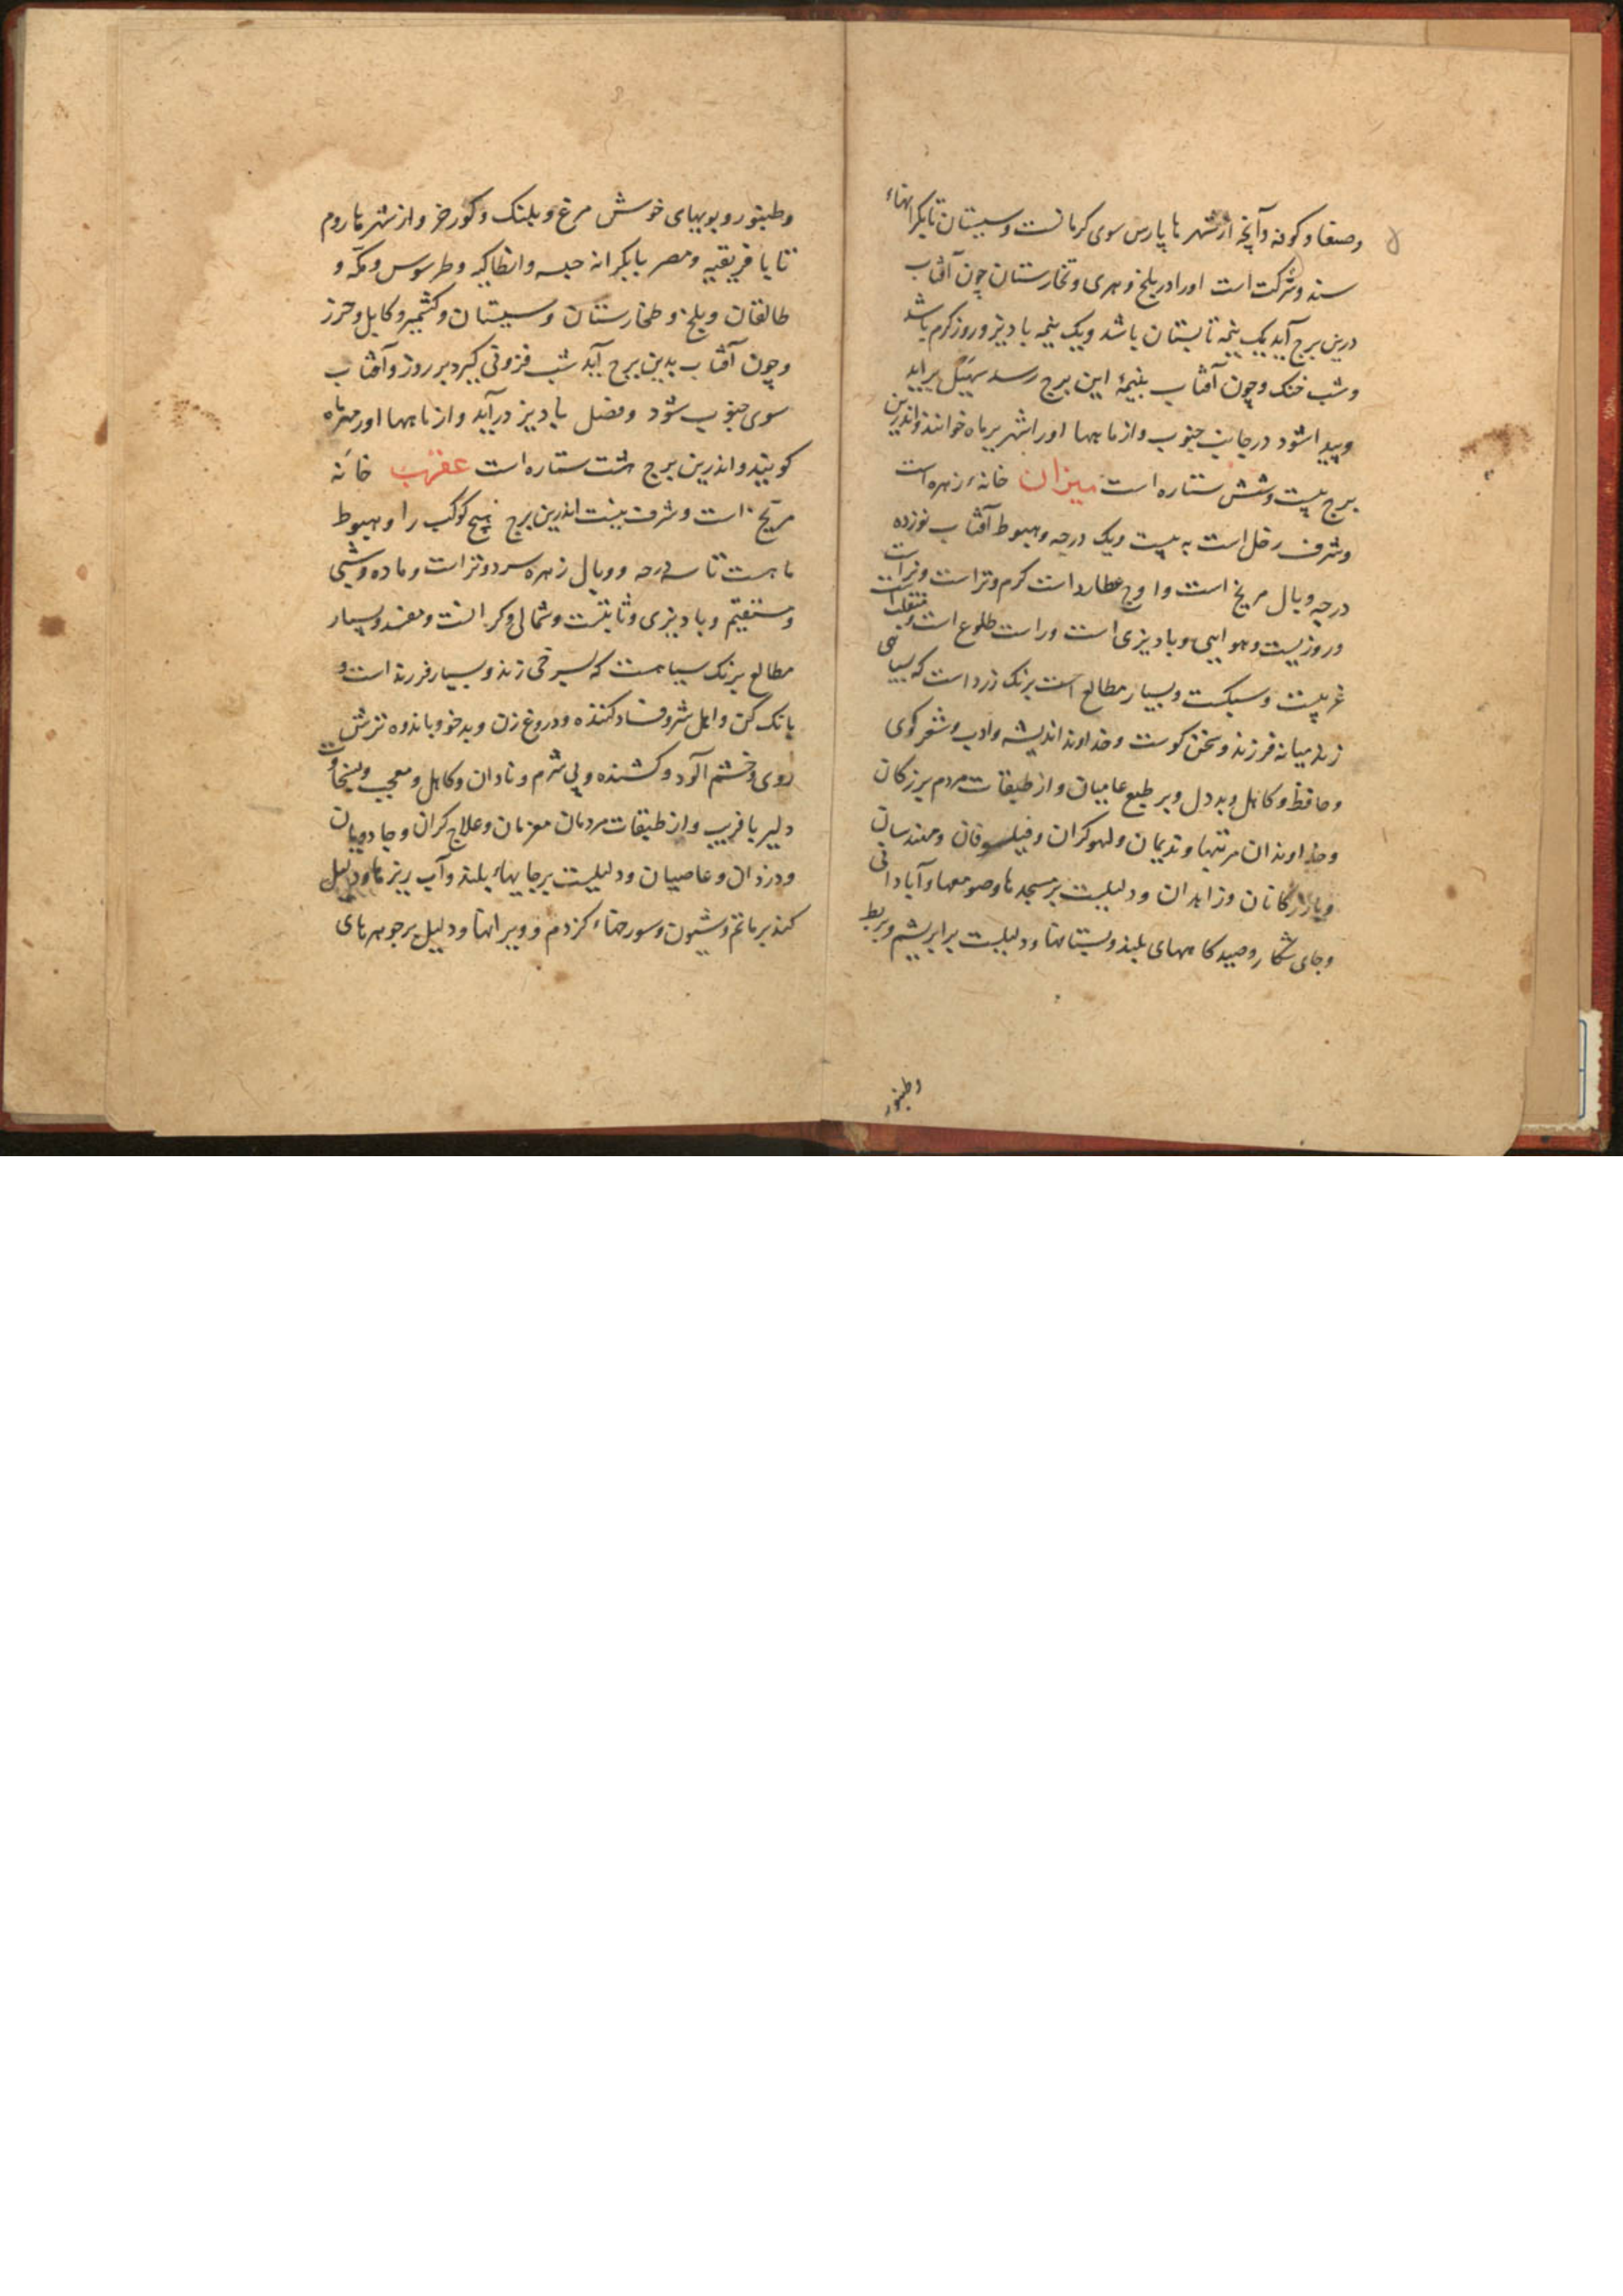 وصنعا و کوفه و آنچه از شهرها پارس سوی کرمانست و سیستان تا بکرانهاء
سند و شرکت است اورا در بلخ و هری و تخارستان چون آفتاب
درین برج آید یک نیمه تابستان باشد و یک نیمه بادیز و روز کرم باشد
و شب خنک و چون آفتاب بنیمهٔ این برج رسد سهیل براید
و پیدا شود در جانب جنوب و از ماهها اورا شهریرماه خوانند و اندرین
برج بیست و شش ستاره است میزان خانهٔ زهره است
و شرف زحل است به بیست و یک درجه و هبوط آفتاب نوزده
درجه و بال مریخ است و اوج عطارد است کرم و تر است و نر است
و روزیست و هوایی و بادیزی است و راست طلوع است و منقلب است
غربیست و سبکست و بسیار مطالع است برنک زرد است که بسیاهی
زند میانه فرزند و سخن کوست و خداوند اندیشه و ادب و شعر کوی
و حافظ و کاهل و بد دل و بر طبع عامیان و از طبقات مردم بزرکان
و خداوندان مرتبها و ندیمان و لهوکران و فیلسوفان و مهندسان
و بازرکانان و زاهدان و دلیلست بر مسجدها و صومعها و آبادانی
و جای شکار و صیدکاههای بلند و بستانها و دلیلست بر ابریشم و بربط
وطنبور
وطنبور و بویهای خوش مرغ و پلنک و کورخر و از شهرها روم
تا با فریقیه و مصر با بکرانه حبسه و انطاکیه و طرسوس و مکه و
طالقان و بلخ و طخارستان و سیستان و کشمیر و کابل و خزز
و چون آفتاب بدین برج آید شب فزونی کیرد بر روز و آفتاب
سوی جنوب شود و فصل بادیز درآید و از ماهها اورا مهرماه
کویند و اندرین برج هشت ستاره است عقرب خانه
مریخ است و شرف نیست اندرین برج هیچ کوکب را و هبوط
ماهست تا سه درجه و وبال زهره سرد و تر است و ماده و شبی
و مستقیم و بادیزی و ثابتست و شمالی و کرانست و مفسد و بسیار
مطالع برنک سیاهست که بسرخی زند و بسیار فرزند است و
بانک کن و اهل شر و فساد کننده و دروغ زن و بدخو و باندوه ترش
روی و خشم آلود و کشنده و بی شرم و نادان و کاهل و معجب و بسخاوت
دلیر با فریب و از طبقات مردمان معزمان و علاج کران و جادویان
و دزدان و عاصیان و دلیلیست بر جایهاء بلند و آب ریزها و دلیل
کند بر ماتم و شیون و سوراخهاء کزدم و ویرانها و دلیل بر جوهرهای